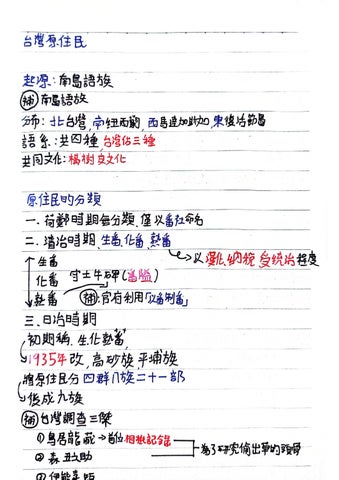 台灣原住民
起源:南島語族
補南島語族
分布:北台灣,南紐西蘭,西馬達加斯加,東復活節島
語系:共四種,台灣佔三種
共同文化:樹皮文化
原住民的分類
一、荷鄭時期無分類,僅以番社命名
二、清治時期,生番、化番、熟番
以漢化、納稅、受統治程度
生番
化番 守土牛碑(番隘)
熟番 補:官府利用「以番制番」
三、日治時期
初期稱,生、化、熟番,
1935年改,高砂族,平埔族
將原住民分四群八族二十一部
後成九族
補台灣調查三傑
①鳥居龍藏→首位相機記錄
為了研究偷出草的頭骨
②森丑之助
③伊能嘉矩